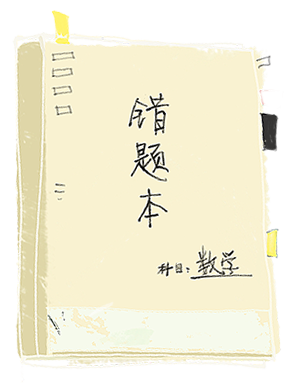 错题本
科目：数学